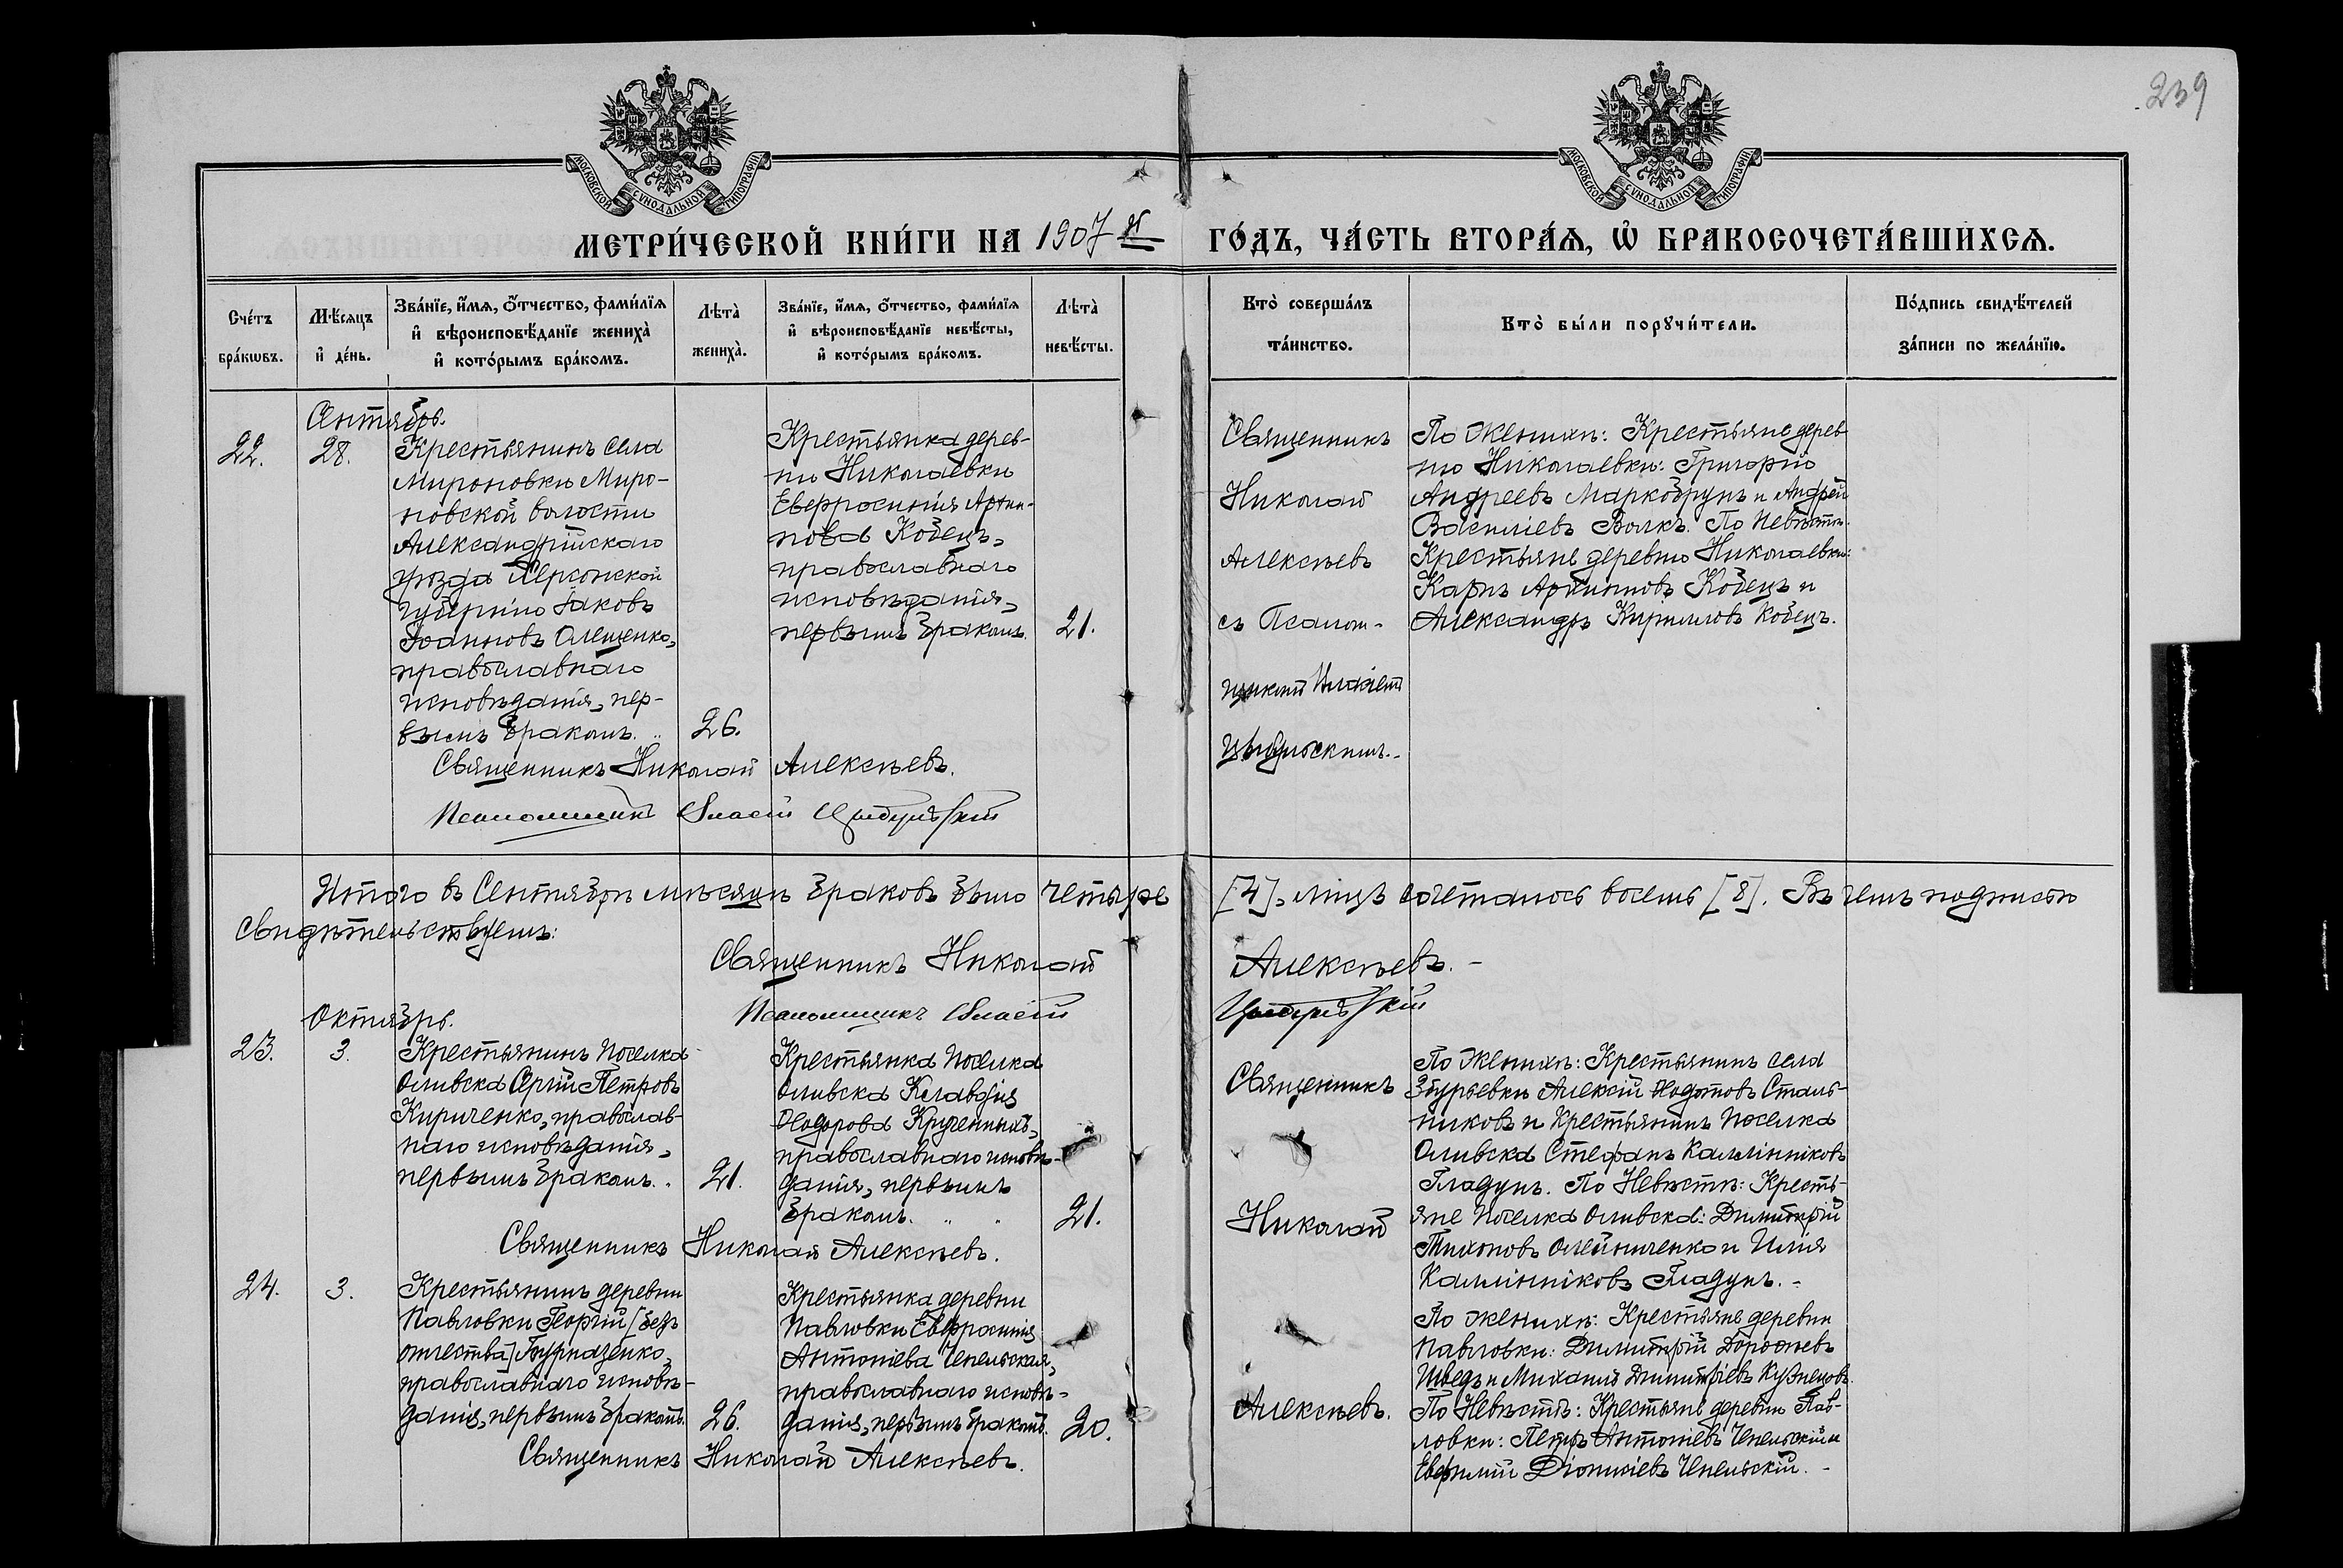 239
МОСКОВСКОЙ СѴНОДАЛЬНОЙ ТИПОГРАФІИ
МОСКОВСКОЙ СѴНОДАЛЬНОЙ ТИПОГРАФІИ
МЕТРИ́ЧЕСКОЙ КНИ́ГИ НА 1907 й
ГО́ДЪ, ЧА́СТЬ ВТОРА́Ѧ, Ѽ БРАКОСОЧЕТА́ВШИХСѦ.
Сче́тъ
бра́кωвъ.
Мѣ́сяцъ
и҆ де́нь.
Зва́нїе, и҆́мѧ, ѻ҆́тчество, фами́лїѧ
и҆ вѣроисповѣ́данїе жениха̀
и҆ кото́рымъ бра́комъ.
Лѣта̀
жениха̀.
Зва́нїе, и҆́мѧ, ѻ҆́тчество, фами́лїѧ
и҆ вѣроисповѣ́данїе невѣ́сты,
и҆ кото́рымъ бра́комъ.
Лѣта̀
невѣ́сты.
Кто̀ соверша́лъ
та́инство.
Кто̀ бы́ли порꙋчи́тели.
По́дпись свидѣ́телей
за́писи по жела́нїю.
Сентябрь.
22.
28.
Крестьянинъ села
Мироновки Миро-
новской волости
Александрійскаго
уѣзда Херсонской
губерніи Іаковъ
Іоанновъ Олещенко,
православнаго
исповѣданія, пер-
вымъ бракомъ.
26.
Крестьянка дерев-
ни Николаевки
Евфросинія Архи-
пова Кобецъ,
православнаго
исповѣданія,
первымъ бракомъ.
21.
Священникъ
Николай
Алексѣевъ
съ Псалом-
щикомъ
По Женихѣ: Крестьяне дерев
ни Николаевки: Григорій
Андреевъ Маркобрунъ и Андрей
Василіевъ Волкъ. По Невѣстѣ:
Крестьяне деревни Николаевки:
Карпъ Архиповъ Кобецъ и
Александръ Кирилловъ Кобецъ.
Священникъ Николай Алексѣевъ.
Псаломщикъ Власій
Итого въ Сентябрѣ мѣсяцѣ браковъ было четыре [4], лицъ сочеталось восемь [8]. Въ чемъ подписью
свидѣтельствуемъ:
Священникъ Николай Алексѣевъ. -
Псаломщикъ Власій
Октябрь.
23.
3.
Крестьянинъ Поселка
Оливска Сергій Петровъ
Кириченко, православ-
наго исповѣданія,
первымъ бракомъ.
21.
Крестьянка Поселка
Оливска Клавдія
Ѳедорова Крученныхъ,
православнаго исповѣ-
данія, первымъ
бракомъ.
21.
Священникъ
Николай
По Женихѣ: Крестьянинъ села
Збурьевки Алексій Сталь-
никовъ и Крестьянинъ Поселка
Оливска Стефанъ Каллинниковъ
Гладунъ. По Невѣстѣ: Кресть-
яне Поселка Оливска: Димитрій
Тихоновъ Олейниченко и Илія
Каллинниковъ Гладунъ. -
Священникъ Николай Алексѣевъ.
24.
3.
Крестьянинъ деревни
Павловки Георгій [безъ
отчества] Бурназенко,
православнаго исповѣ-
данія, первымъ бракомъ.
26.
Крестьянка деревни
Павловки Евфросинія
Антоніева Чепельская,
православнаго исповѣ-
данія, первымъ бракомъ.
20.
Алексѣевъ.
По Женихѣ: Крестьяне деревни
Павловки: Димитрій Дороѳеевъ
Шведъ и Михаилъ Димитріевъ Кузнецовъ.
По Невѣстѣ: Крестьяне деревни Пав-
ловки: Петръ Антоніевъ Чепельскій и
Евфимій Діонисіевъ Чепельскій. -
Священникъ Николай Алексѣевъ.